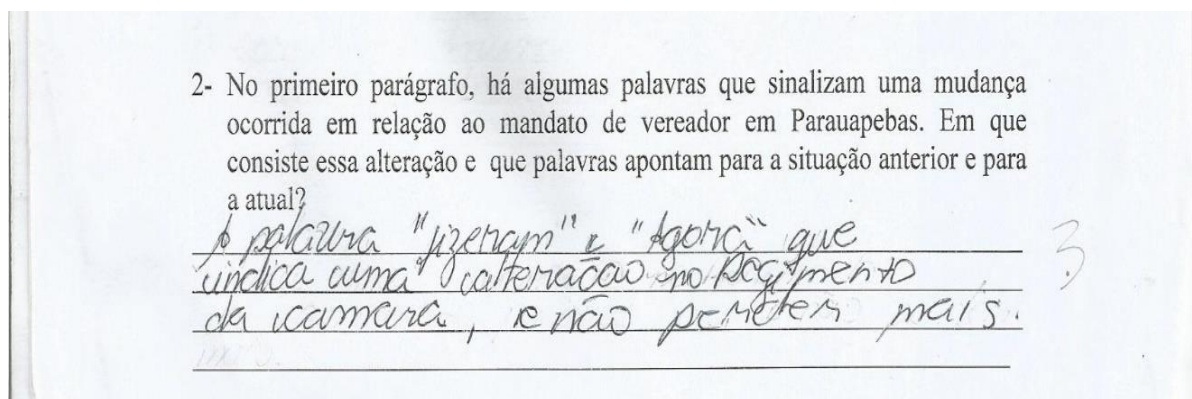 2- No primeiro parágrafo, há algumas palavras que sinalizam uma mudança
ocorrida em relação ao mandato de vereador em Parauapebas. Em que
consiste essa alteração e que palavras apontam para a situação anterior e para
a atual?
A palavra "fizeram" e "Agora" que
indica uma alteração no Regimento
da camara, e não perdem mais.
3